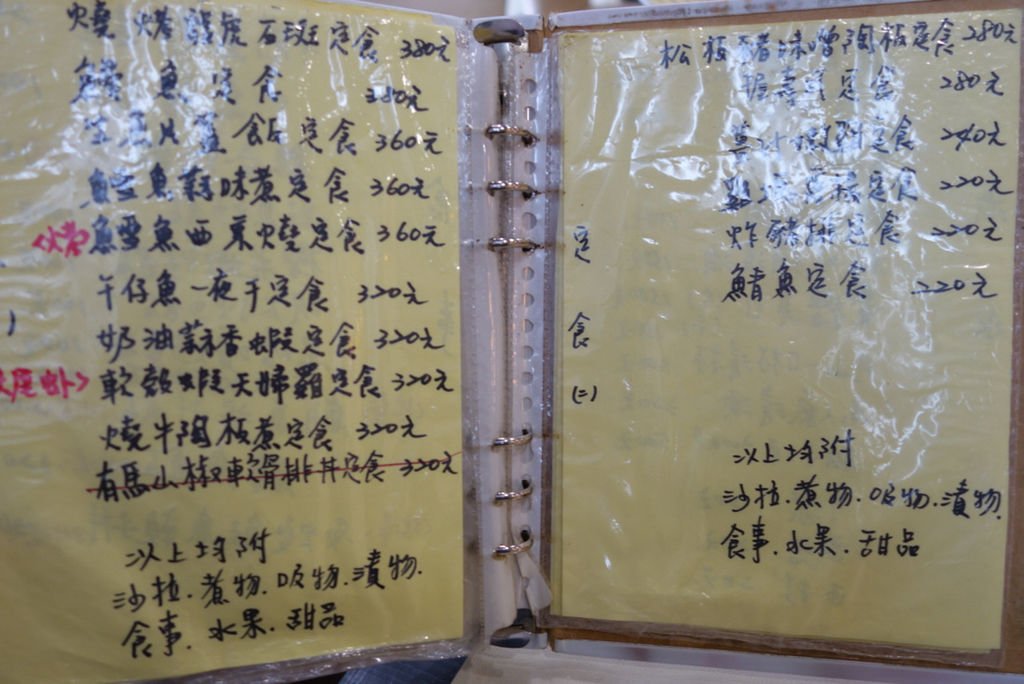 燒烤龍虎石斑定食 380元
鱸魚定食 380元
生魚片蓋飯定食 360元
鱈魚蒜味煮定食 360元
鱈魚西京燒定食 360元
午仔魚一夜干定食 320元
奶油蒜香蝦定食 320元
軟殼蝦天婦羅定食 320元
燒牛陶板煮定食 320元
有馬山椒軟骨排丼定食 320元
以上均附
沙拉.煮物.吸物.漬物.
食事.水果.甜品
定食(二)
松板豬味噌陶板定食 280元
握壽司定食 280元
定食 240元
定食 220元
炸豬排定食 220元
鯖魚定食 220元
以上均附
沙拉.煮物.吸物.漬物.
食事.水果.甜品